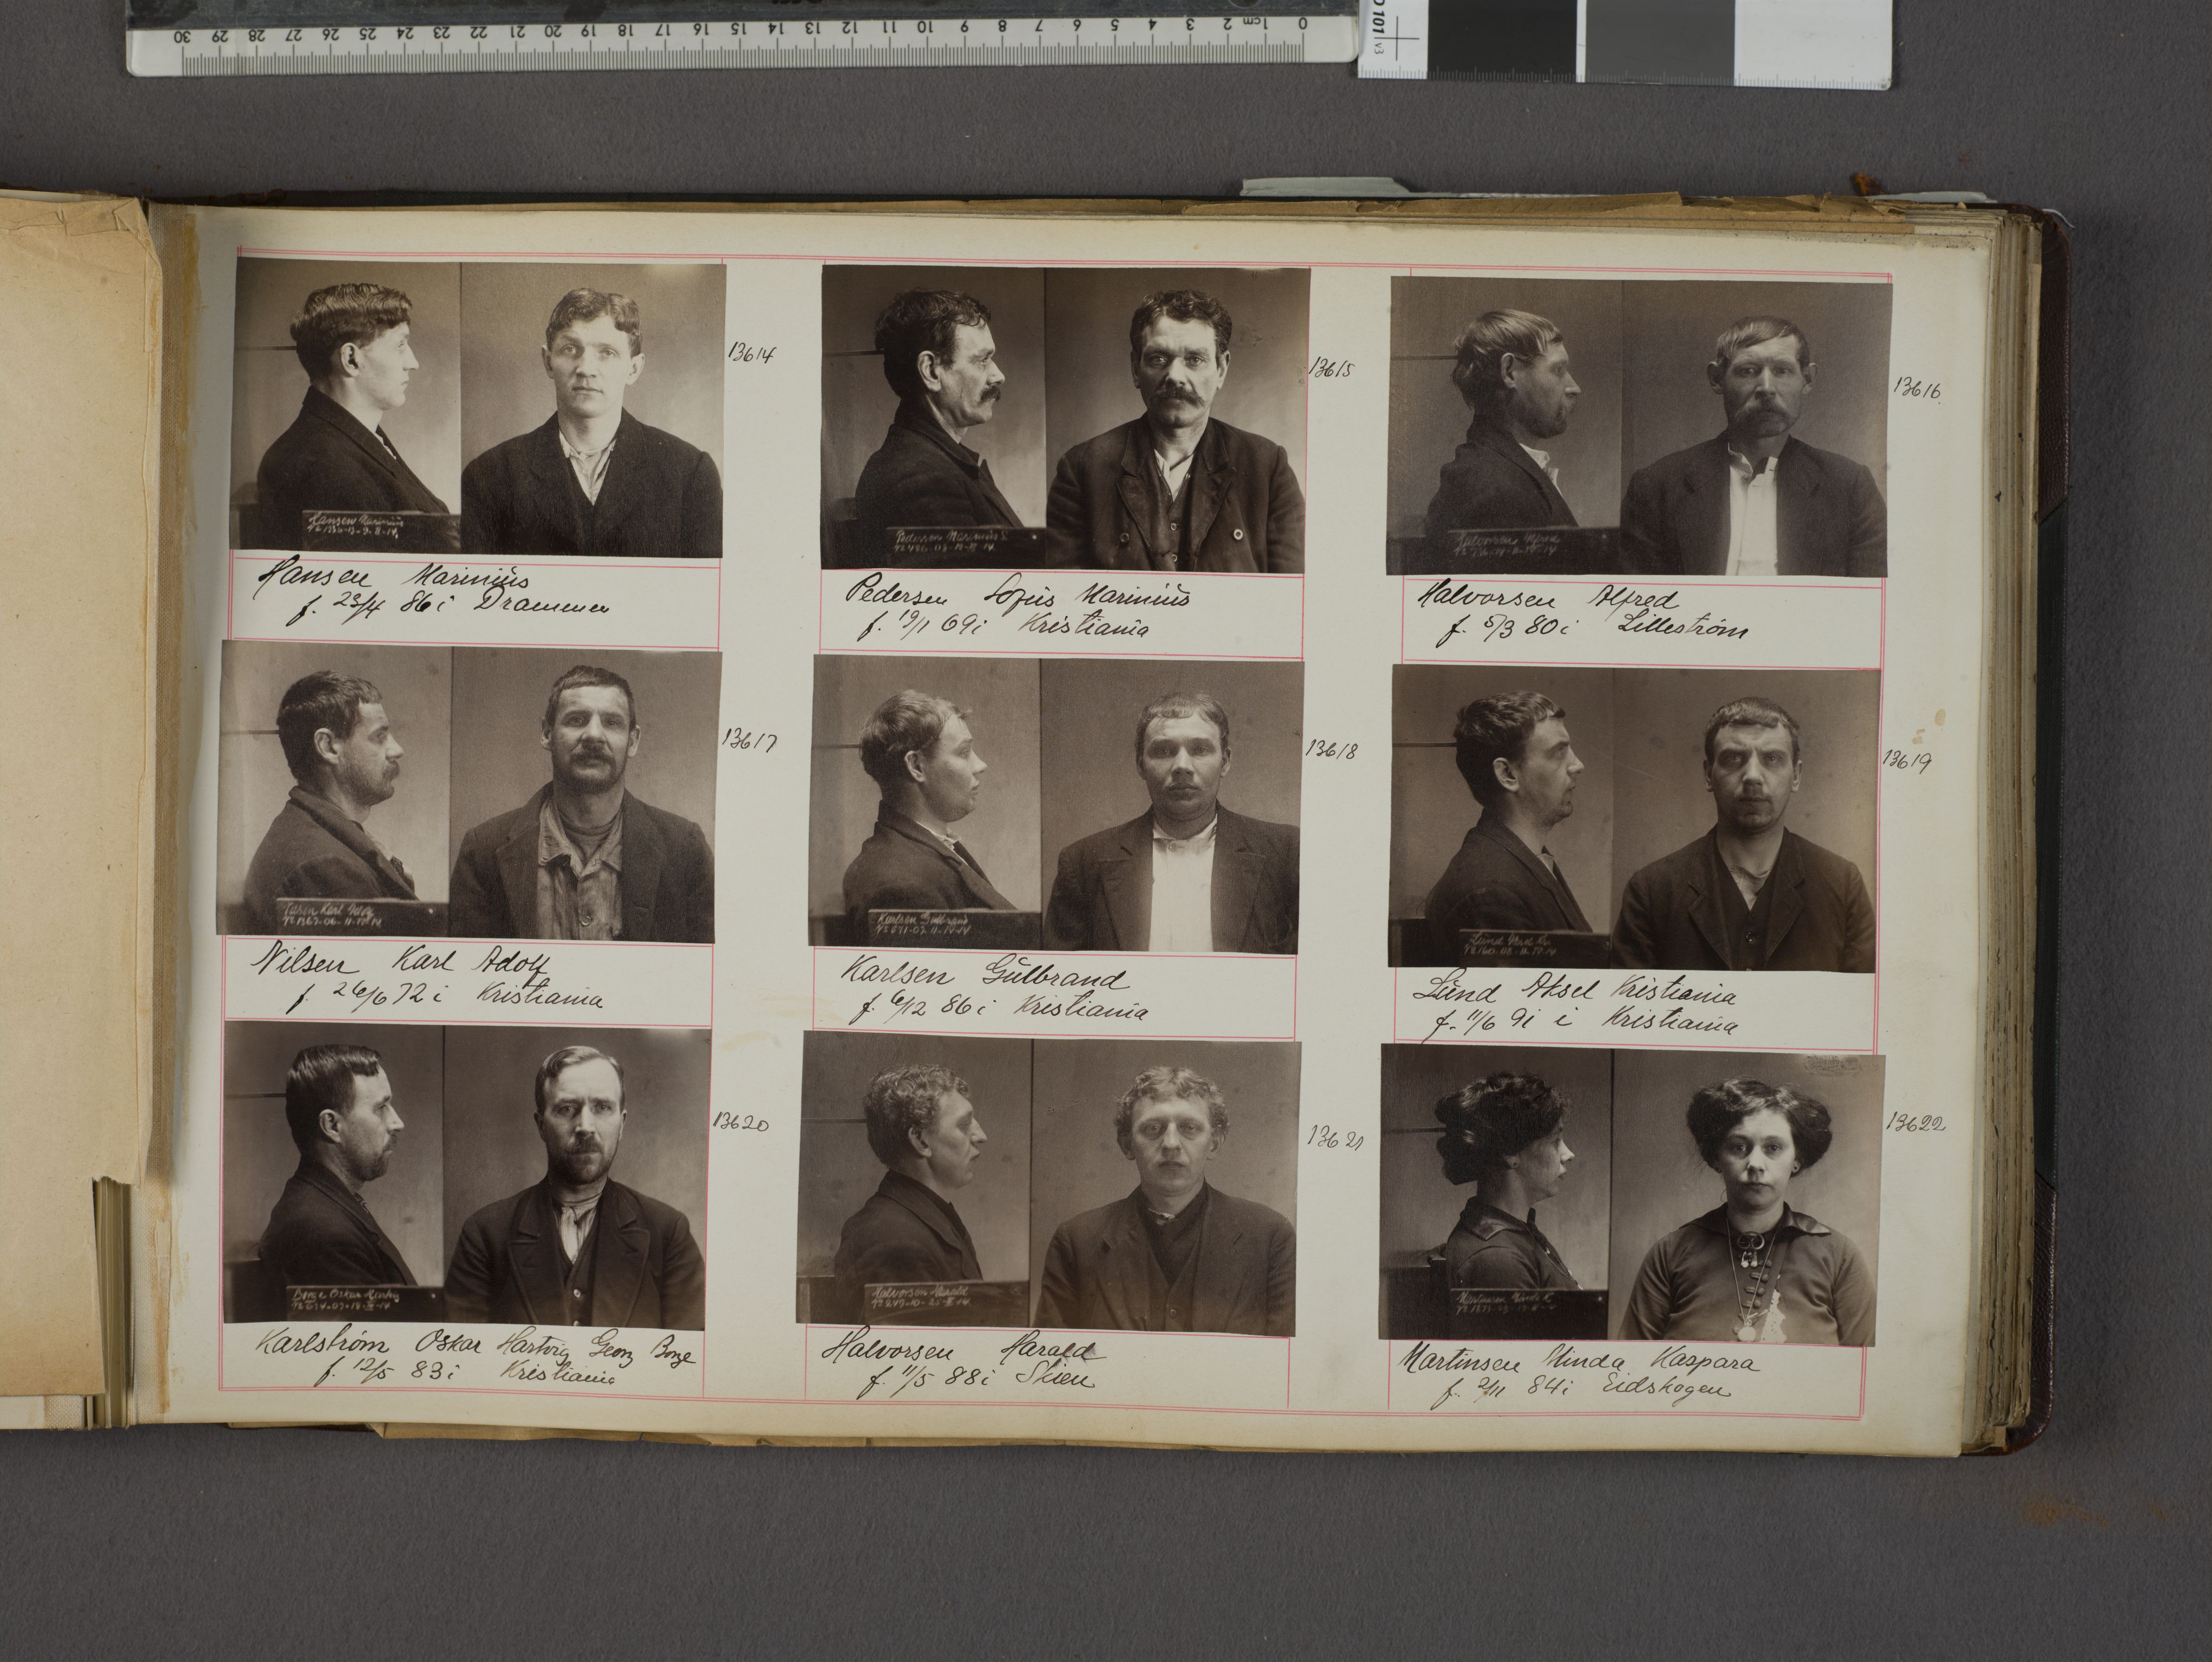 0 1cm 2 3 4 5 6 7 8 9 10 11 12 13 14 15 16 17 18 19 20 21 22 23 24 25 26 27 28 29 30
101 v3
13614
Hansen Marinius
Hansen Marinius
f. 23/4 86 i Drammen
13615
Pedersen Marinius S.
Pedersen Sofus Marinius
f. 19/1 69 i Kristiania
13616.
Halvorsen Alfred
Halvorsen Alfred
f. 5/3 80 i Lilleström
13617
Nilsen Karl Adolf
f. 26/6 72 i Kristiania
13618
Karlsen Gulbrand
Karlsen Gulbrand
f. 6/12 86 i Kristiania
13619
Lund Aksel Kr.
Lund Aksel Kristiania
f. 11/6 91 i Kristiania
13620
Borge Oskar Hartvig
Karlström Oskar Hartvig Georg Borge
f. 12/5 83 i Kristiania
13621
Halvorsen Harald
Halvorsen Harald
f. 11/5 88 i Skien
13622
Martinsen Minda K.
Martinsen Minda Kaspara
f. 2/11 84 i Eidskogen